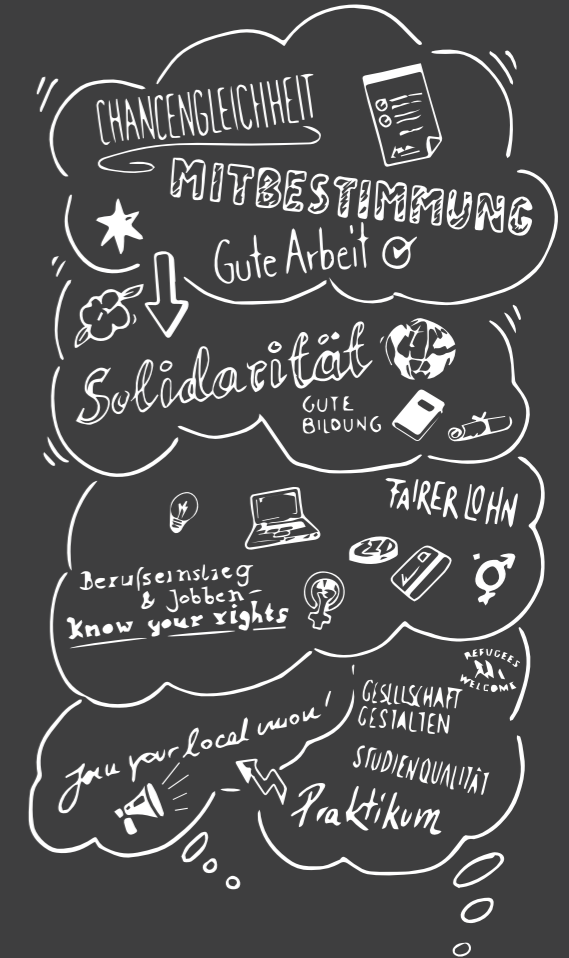 CHANCENGLEICHHEIT
MITBESTIMMUNG
Gute Arbeit
Solidarität
GUTE
BILDUNG
FAIRER LOHN
Berufseinstieg
& Jobben-
know your rights
REFUGEES
WELCOME
GESELLSCHAFT
GESTALTEN
Join your local union!
STUDIENQUALITÄT
Praktikum